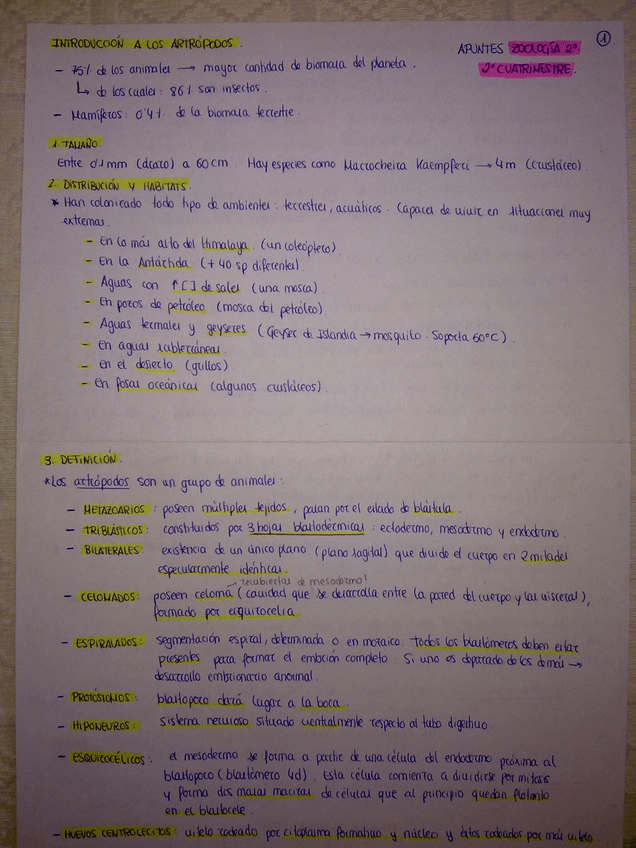 INTRODUCCIÓN A LOS ARTRÓPODOS.
APUNTES ZOOLOGÍA 2º
2º CUATRIMESTRE.
1
- 75% de los animales → mayor cantidad de biomasa del planeta.
↳ de los cuales: 86% son insectos.
- Mamíferos: 0'4% de la biomasa terrestre.
1. TAMAÑO:
Entre 0'1 mm (ácaro) a 60 cm. Hay especies como Macrocheira Kaempferi → 4m (crustáceo).
2. DISTRIBUCIÓN Y HÁBITATS.
* Han colonizado todo tipo de ambientes: terrestres, acuáticos. Capaces de vivir en situaciones muy
extremas.
- En lo más alto del Himalaya. (un coleóptero)
- En la Antártida (+ 40 sp diferentes)
- Aguas con ↑[ ] de sales (una mosca).
- En pozos de petróleo (mosca del petróleo).
- Aguas termales y geyseres (Geyser de Islandia → mosquito. Soporta 60ºC)
- En aguas subterráneas.
- En el desierto (grillos)
- En fosas oceánicas (algunos crustáceos).
3. DEFINICIÓN.
*Los artrópodos son un grupo de animales:
- METAZOARIOS: poseen múltiples tejidos, pasan por el estado de blástula.
- TRIBLÁSTICOS: constituidos por 3 hojas blastodérmicas: ectodermo, mesodermo y endodermo.
- BILATERALES: existencia de un único plano (plano sagital) que divide el cuerpo en 2 mitades
especularmente idénticas.
→ recubiertas de mesodermo!
- CELOMADOS: poseen celoma (cavidad que se desarrolla entre la pared del cuerpo y las vísceras),
formado por esquizocelia.
- ESPIRALADOS: segmentación espiral, determinada o en mosaico. Todos los blastómeros deben estar
presentes para formar el embrión completo. Si uno es separado de los demás →
desarrollo embrionario anormal.
- PROTÓSTOMOS: blastoporo dará lugar a la boca.
- HIPONEUROS: sistema nervioso situado ventralmente respecto al tubo digestivo.
- ESQUIZOCÉLICOS: el mesodermo se forma a partir de una célula del endodermo próxima al
blastoporo (blastómero 4d). Esta célula comienza a dividirse por mitosis
y forma dos masas macizas de células que al principio quedan flotando
en el blastocele.
- HUEVOS CENTROLECITOS: vitelo rodeado por citoplasma formativo y núcleo y éstos rodeados por más vitelo